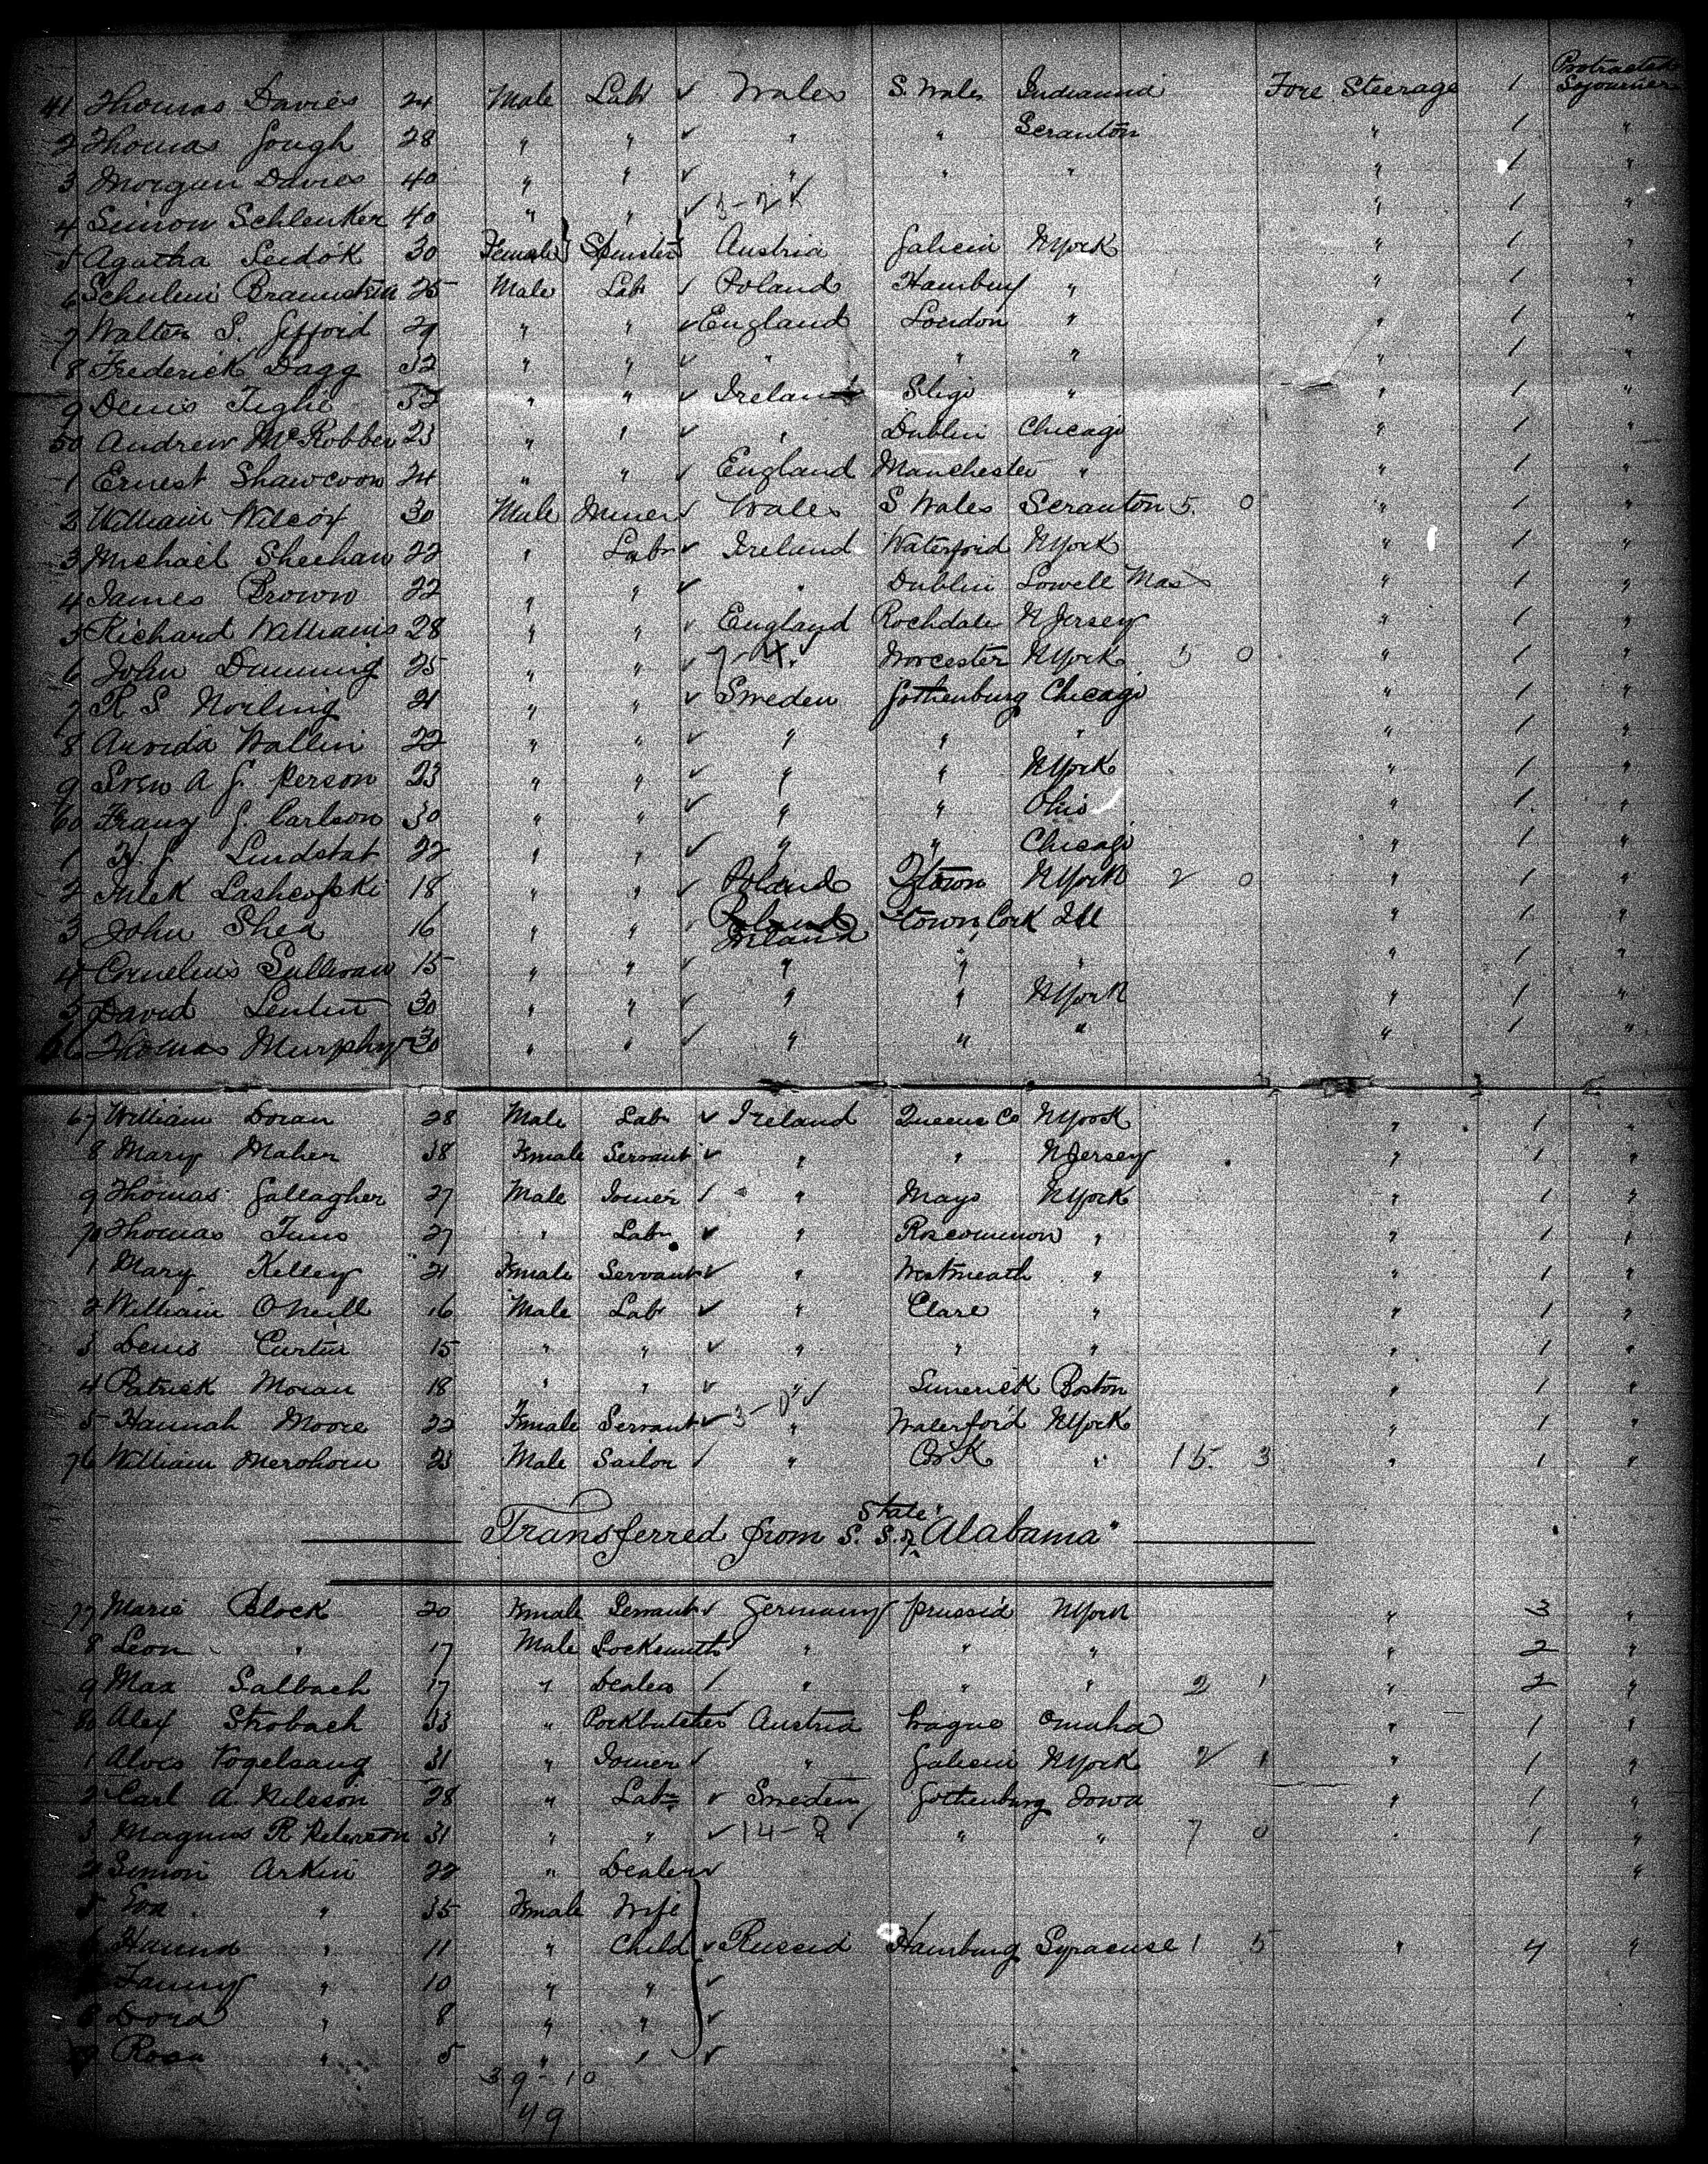 Protracted
41 Thomas Davies 24 Male Labr ✓ Wales S. Wales Indianna Fore Steerage 1 Sojourner
2 Thomas Gough 28 " " ✓ " " Scranton " 1 "
3 Morgan Davies 40 " " ✓ " " " " 1 "
4 Simon Schlenker 40 " " ✓ 3-2 ✓ " 1 "
5 Agatha Seidok 30 Female Spinster Austria Galicia NYork " 1 "
6 25 Male Labr ✓ Poland Hamburg " " 1 "
7 Walter S. Gifford 29 " " ✓ England London " " 1 "
8 Frederick Dagg 32 " " ✓ " " " " 1 "
9 Denis Tighe " " ✓ Ireland Sligo " " 1 "
50 Andrew McRobben 23 " " ✓ " Dublin Chicago " 1 "
1 Ernest 24 " " ✓ England Manchester " " 1 "
2 William Wilcox 30 Male Miner ✓ Wales S Wales Scranton 5. 0 " 1 "
3 Michael Sheehan 22 " Labr ✓ Ireland Waterford NYork " 1 "
4 James Brown 22 " " ✓ " Dublin Lowell Mas " 1 "
5 Richard Williams 28 " " ✓ England Rochdale NJersey " 1 "
6 John Dunning 25 " " ✓ 7-4. ✓ Worcester NYork 5 0 " 1 "
7 R S Norling 21 " " ✓ Sweden Gothenburg Chicago " 1 "
8 Wallin 22 " " ✓ " " " " 1 "
9 Sven A J. Person 23 " " ✓ " " NYork " 1 "
60 Franz G. Carlson 30 " " ✓ " " Ohio " 1 "
1 Lindstat 22 " " ✓ " " Chicago " 1 "
2 18 " " ✓ Poland Qtown NYork 2 0 " 1 "
3 John Shea 16 " " ✓ Ireland town Cork Ill " 1 "
4 Cornelius Sullivan 15 " " ✓ " " " " 1 "
5 David 30 " " ✓ " " NYork " 1 "
66 Thomas Murphy 30 " " ✓ " " " " 1 "
67 William Doran 28 Male Labr ✓ Ireland Queens Co NYork " 1 "
8 Mary Maher 38 Female Servant ✓ " " NJersey " 1 "
9 Thomas Gallagher 27 Male Joiner ✓ " Mayo NYork " 1 "
70 Thomas 27 " Labr ✓ " Roscommon " " 1 "
1 Mary Kelley 21 Female Servant ✓ " Westmeath " " 1 "
2 William ONeill 16 Male Labr ✓ " Clare " " 1 "
3 Denis Curtin 15 " " ✓ " " " " 1 "
4 Patrick Moran 18 " " ✓ " Limerick Boston " 1 "
5 Hannah Moore 22 Female Servant ✓ 3-0 ✓ " Waterford NYork " 1 "
76 William 23 Male Sailor ✓ " Cork " 15. 3 " 1 "
Transferred from S. S. State of "Alabama"
77 Marie Block 20 Female Servant ✓ Germany Prussia NYork " 3 "
8 Leon " 17 Male Locksmith ✓ " " " " 2 "
9 Max Salbach 17 " Dealer ✓ " " " 2 1 " 2 "
80 Alex Strobach 33 " Porkbutcher ✓ Austria Prague Omaha " 1 "
1 Alois Vogelsang 31 " Joiner ✓ " Galicia NYork 2 1 " 1 "
2 Carl A Nilsson 28 " Labr ✓ Sweden Gothenburg Iowa " 1 "
3 Magnus R Peterson 31 " " ✓ 14-2 ✓ " " 7 0 " 1 "
4 Simon Arkin 22 " Dealer ✓ "
5 Eva " 35 Female Wife
6 Hanna " 11 " Child ✓ Russia Hamburg Syracuse 1 5 " 4 "
7 Fanny " 10 " " ✓
8 Dora " 8 " " ✓
9 Rosa " 5 " " ✓
39-10
49